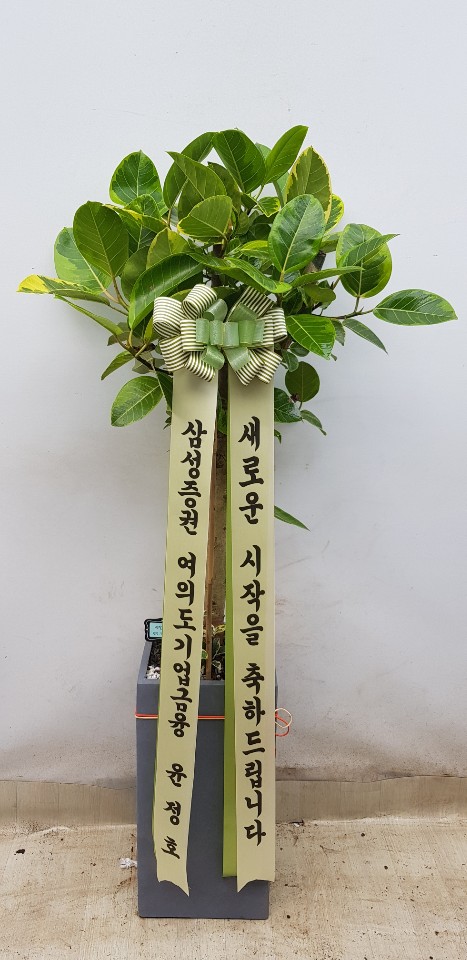 새로운 시작을 축하드립니다
삼성증권 여의도기업금융 윤정호